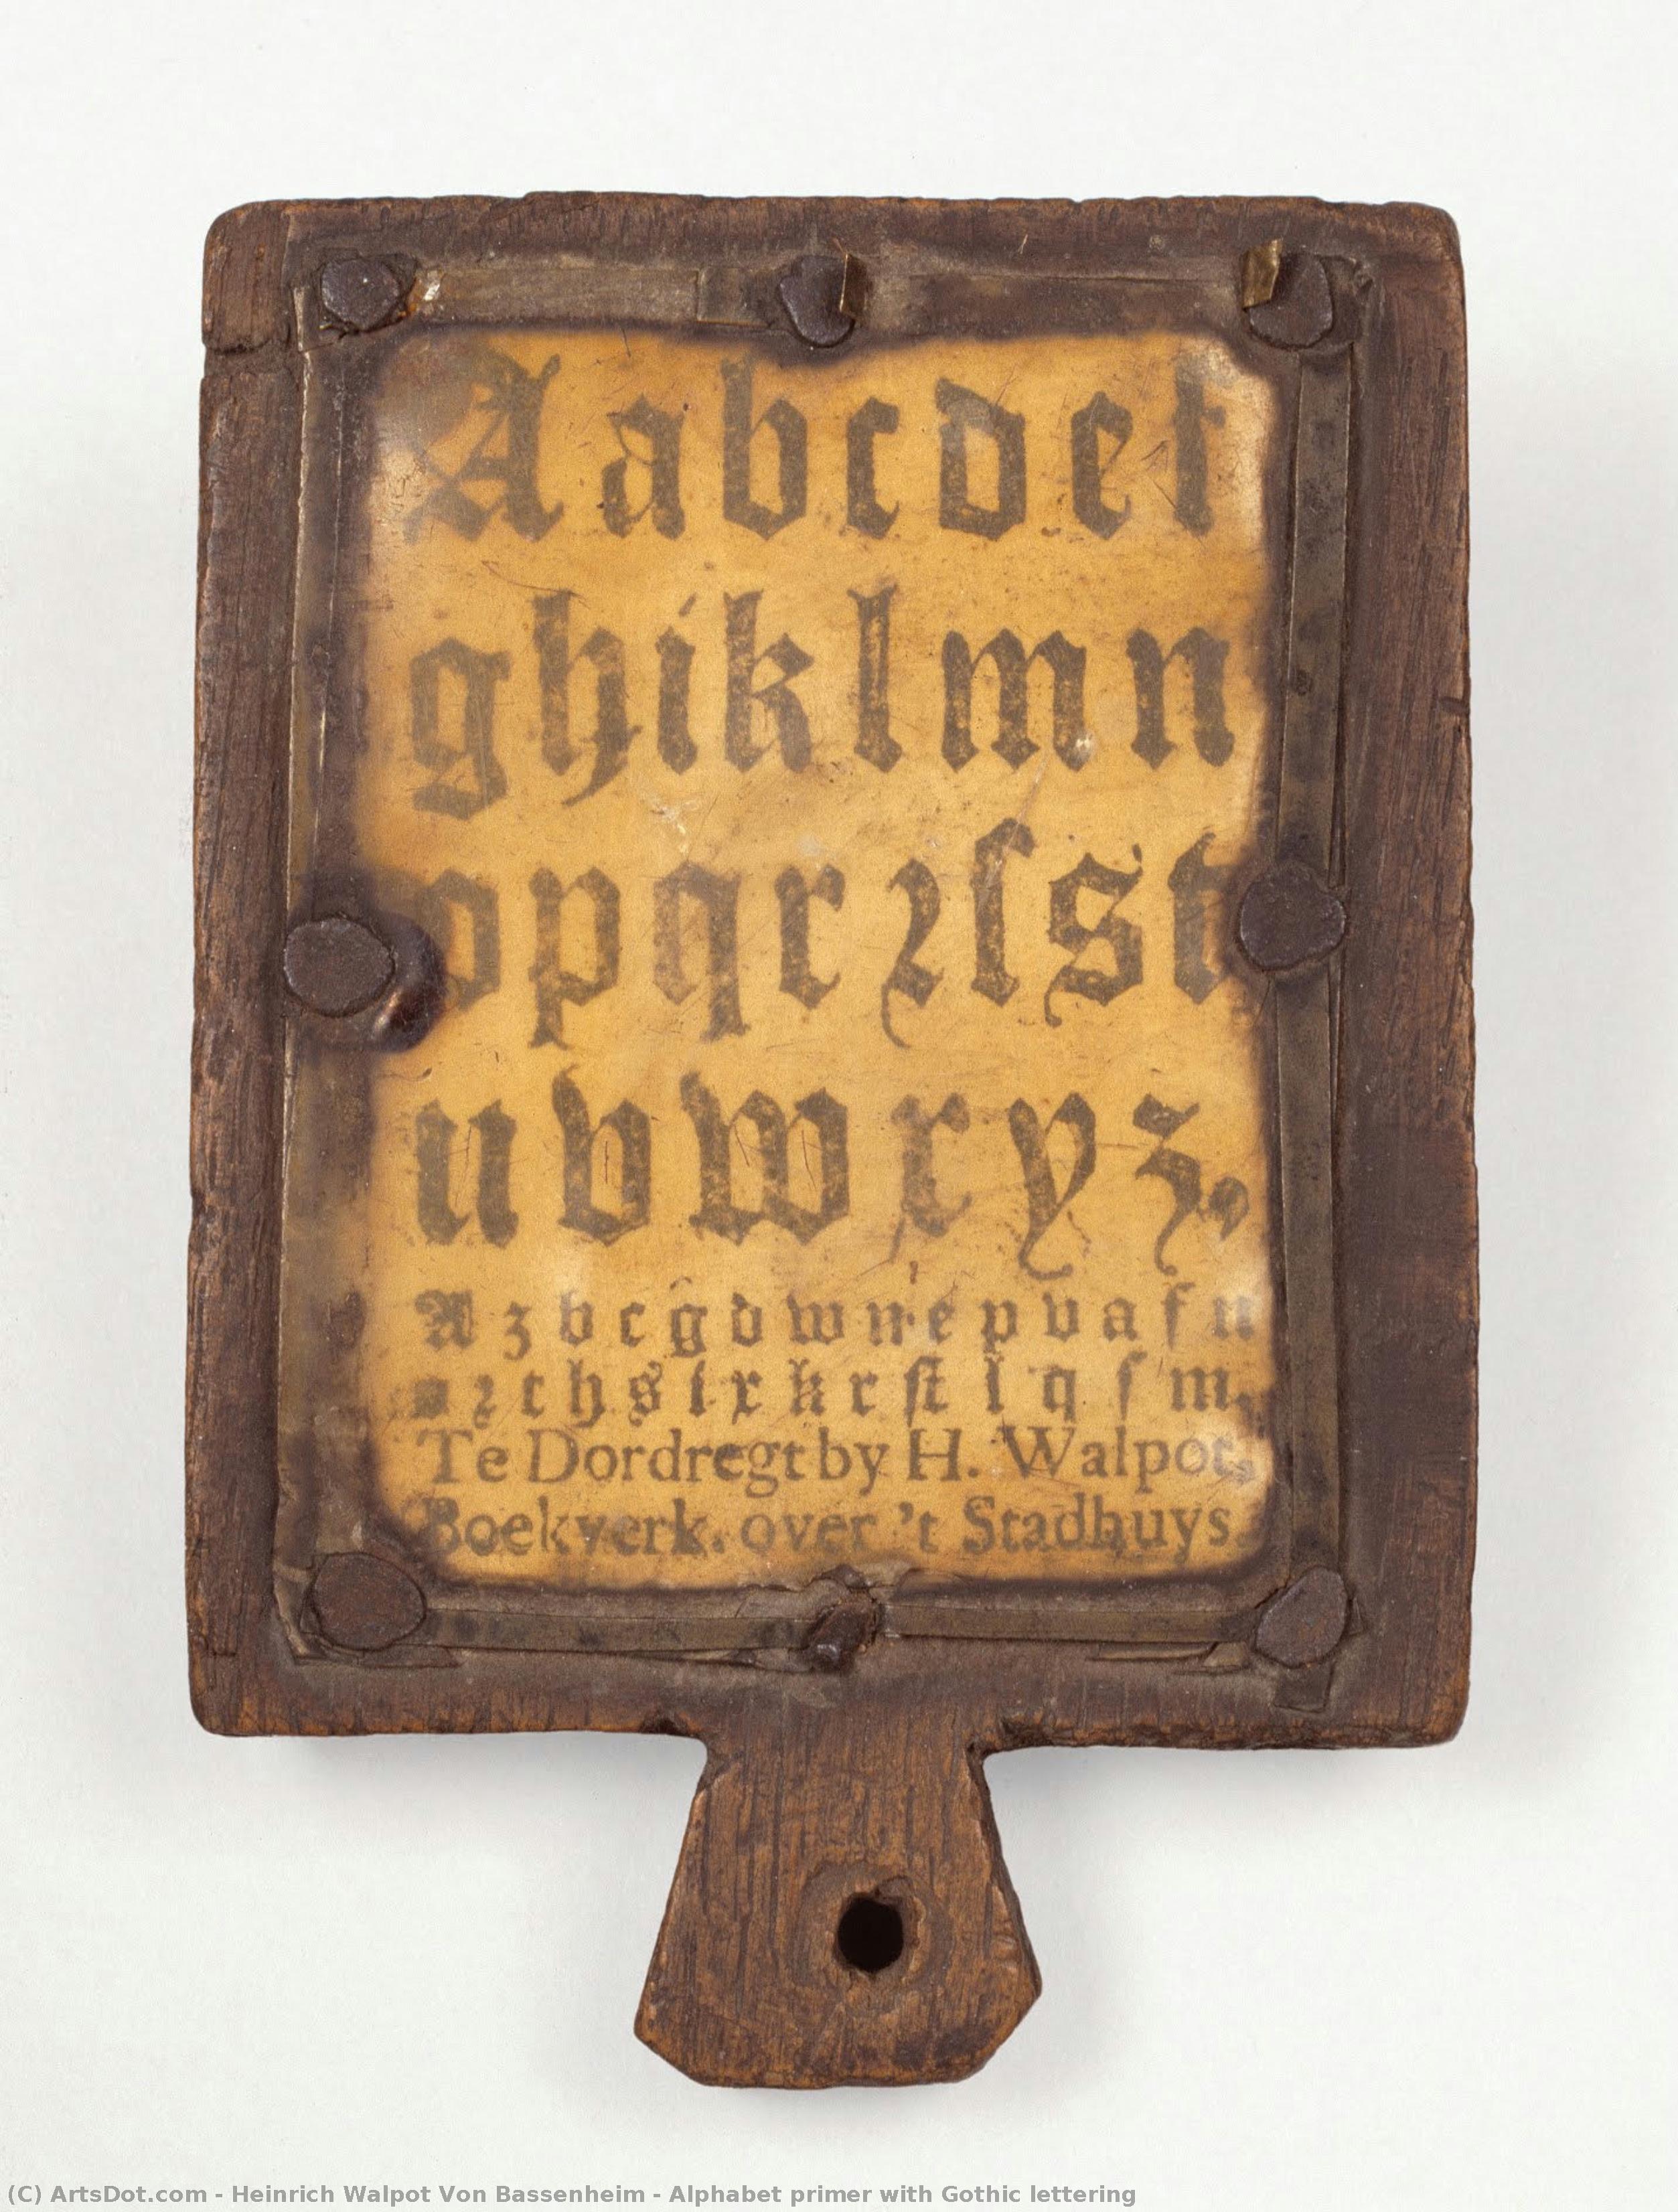 A a b c d e f
g h i k l m n
o p q r ꝛ ſ s t
u v w x y z,
A z b c g d w n e p v a f u
o ꝛ t h s i x k r ſt l q ſ m,
Te Dordregt by H. Walpot,
Boekverk. over 't Stadhuys.
(C) ArtsDot.com - Heinrich Walpot Von Bassenheim - Alphabet primer with Gothic lettering